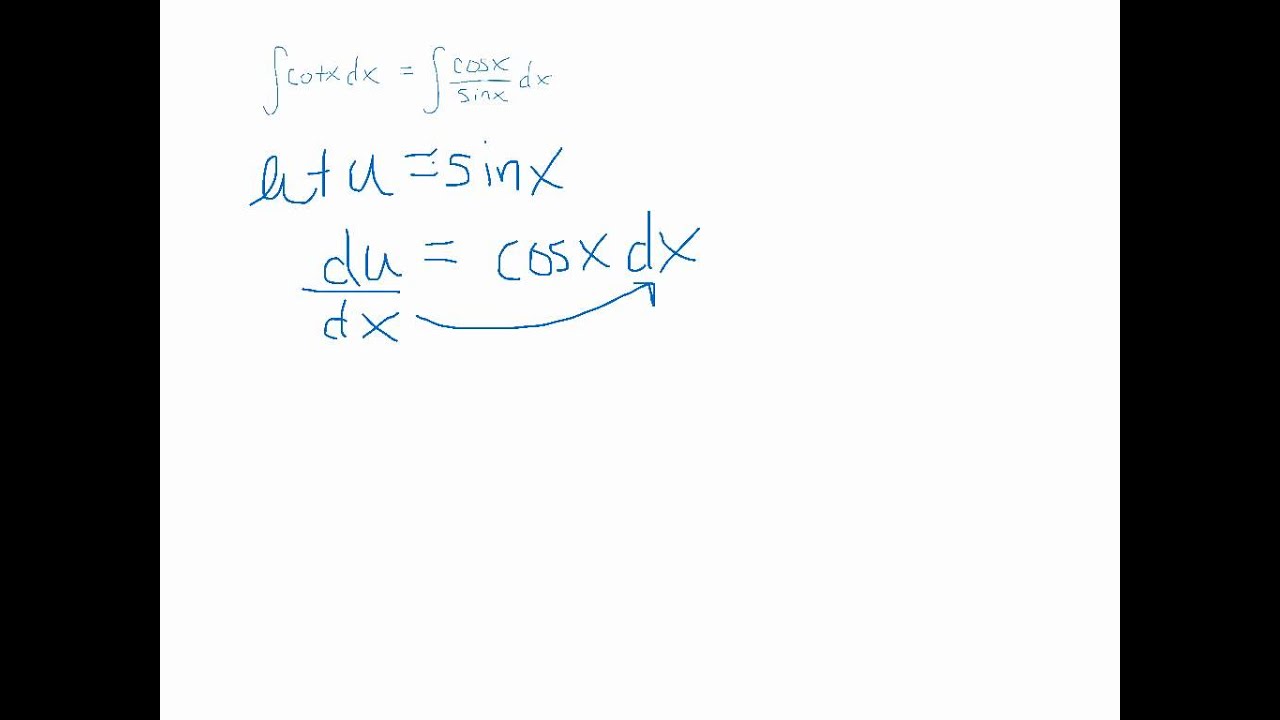 ∫cotx dx = ∫ cosx/sinx dx
let u = sinx
du/dx = cosx dx